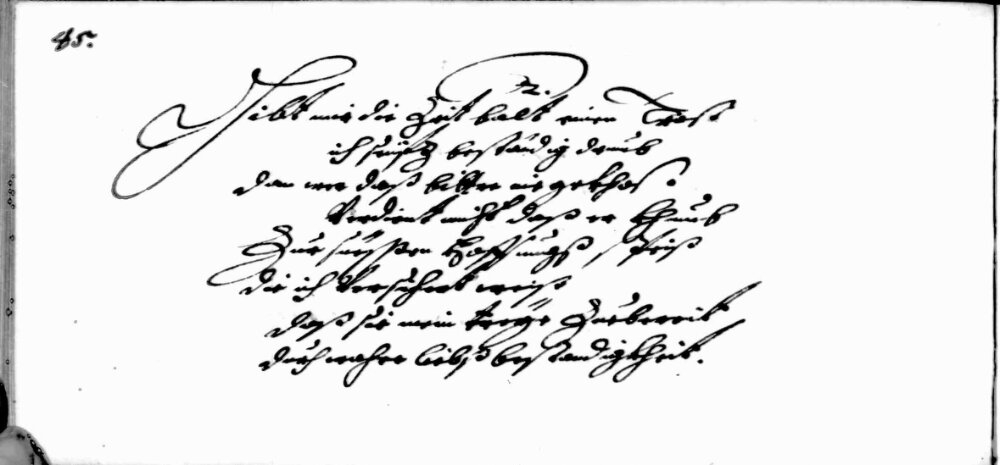 85.
2.
Gibt mir die Zeit balt einen Trost
ich seüftz beständig drub
dan wer daß bitter nie gekhost
Verdient nicht daß er khumb
Zur süeßen Hoffnungs speiß
die ich Versichert weiß
daß sie mein treye Zuebereit
durch wahre liebß beständigkheit.